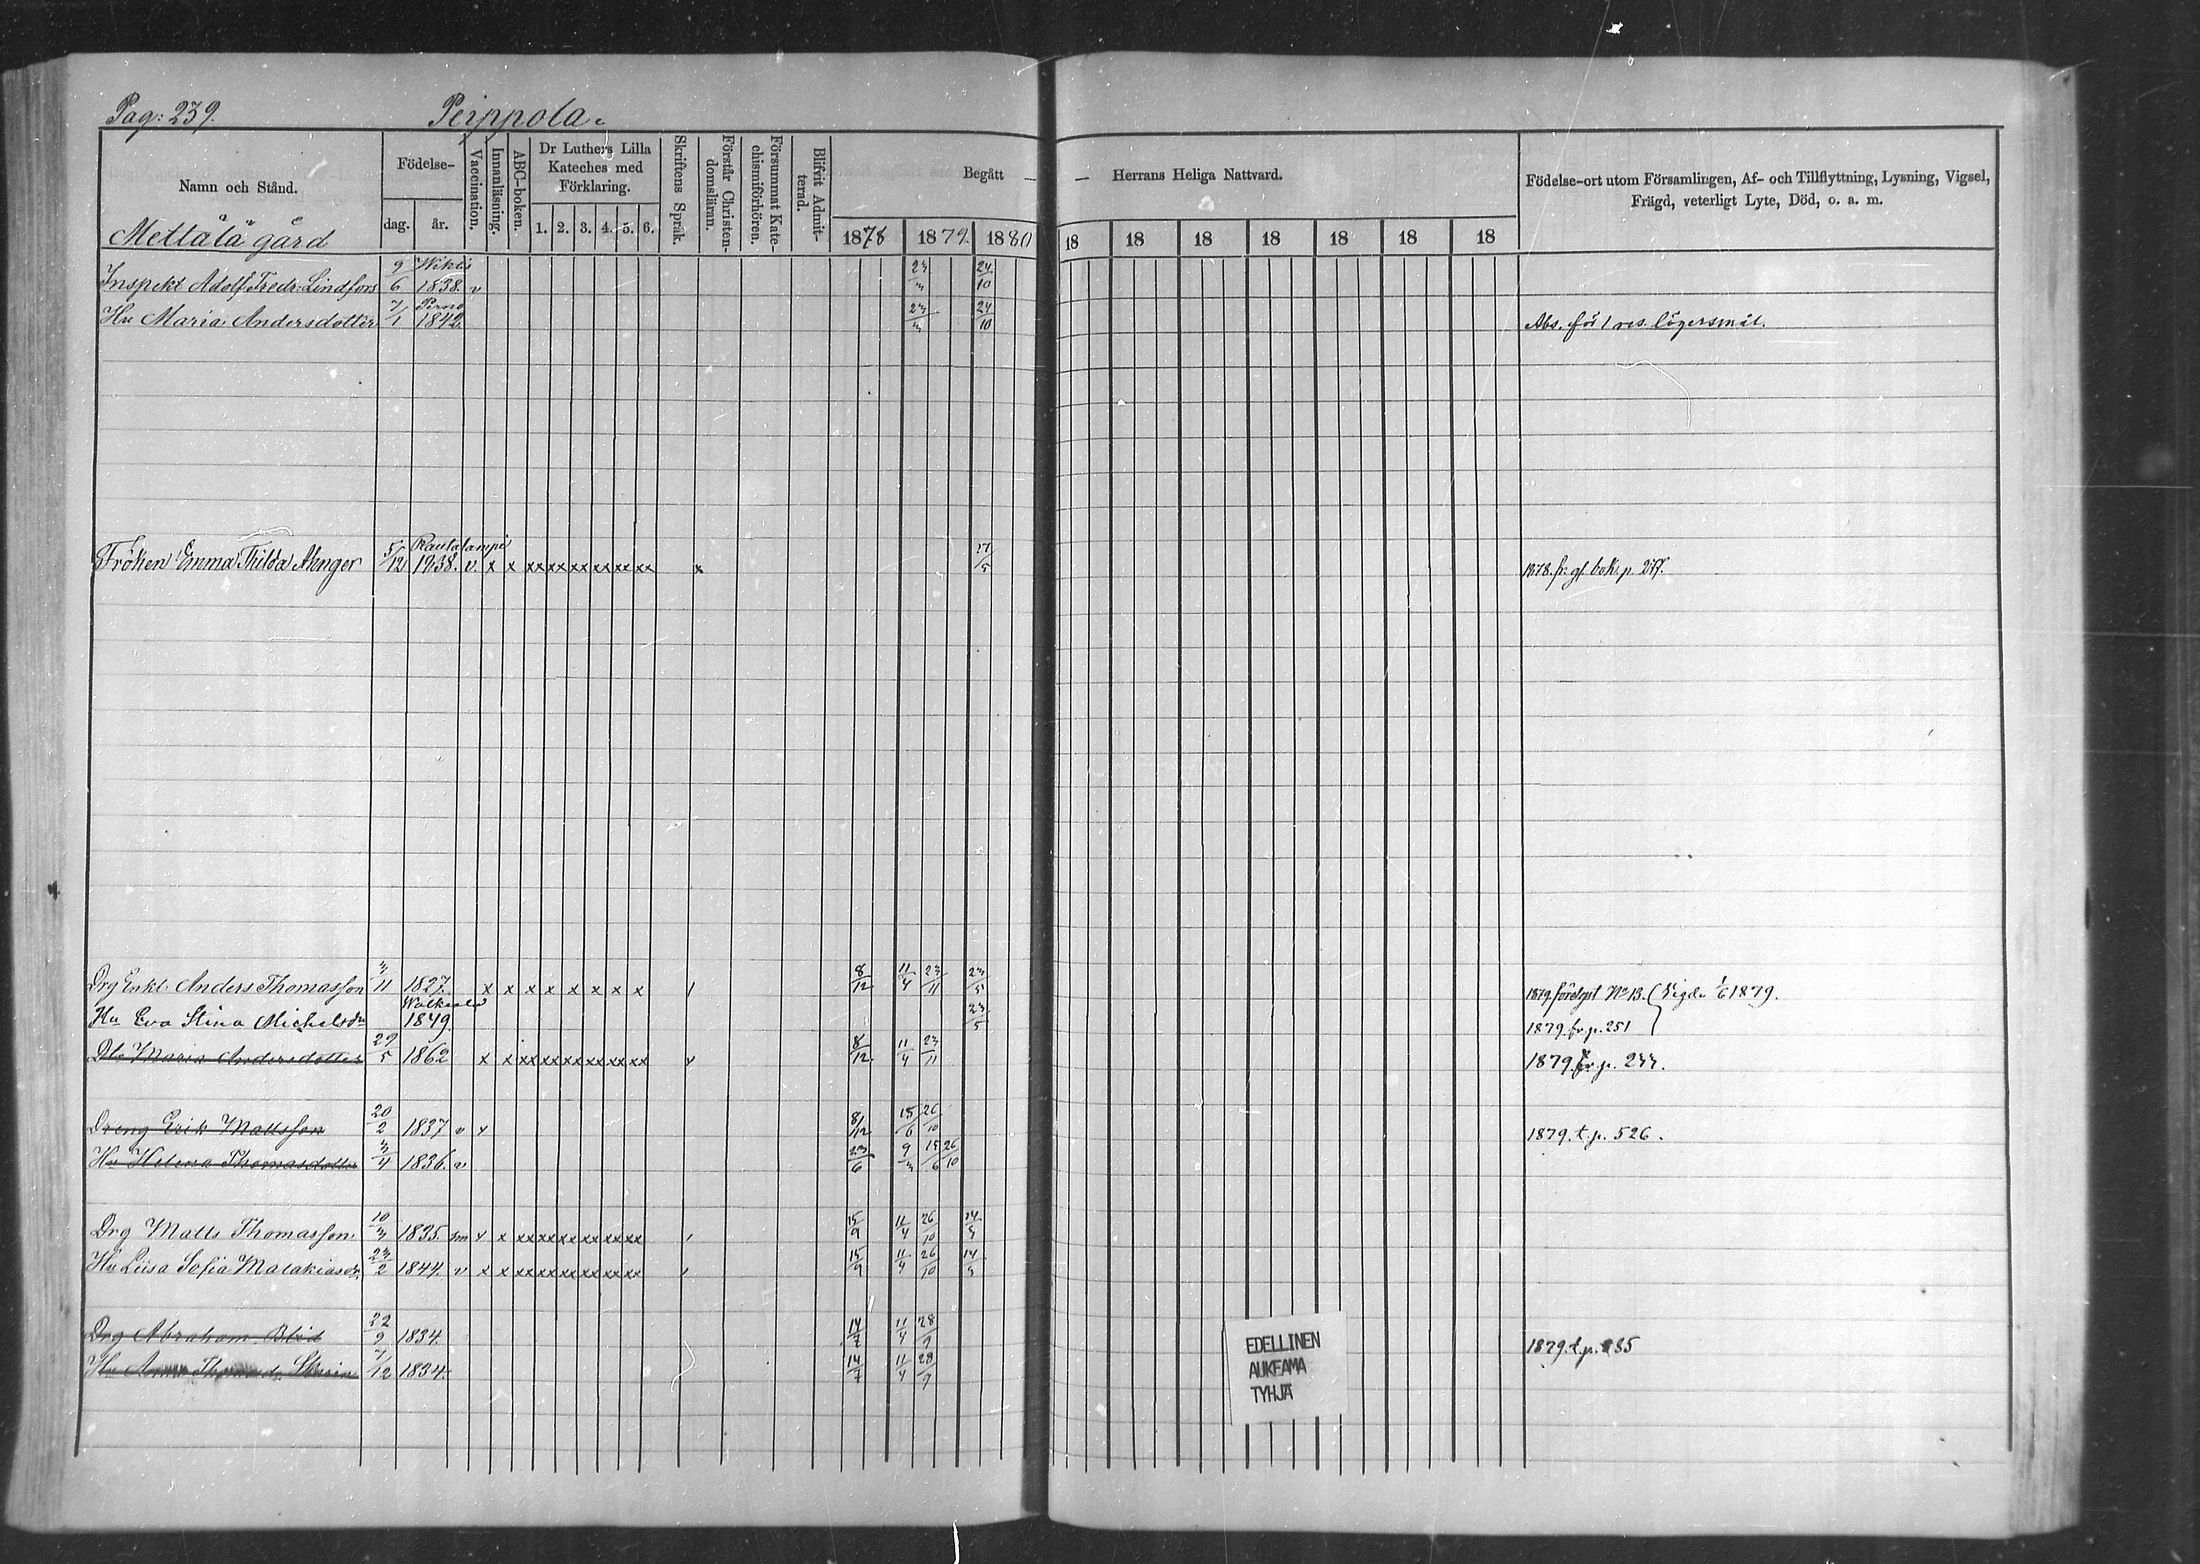 Pag: 239. Peippola.
Namn och Stånd. Födelse- dag. år. Vaccination. Innanläsning. ABC-boken. Dr Luthers Lilla Kateches med Förklaring. 1. 2. 3. 4. 5. 6. Skriftens Språk. Förstår Christendomsläran. Försummat Katechismiförhören. Blifvit Admitterad. Begått — — Herrans Heliga Nattvard. Födelse-ort utom Församlingen, Af- och Tillflyttning, Lysning, Vigsel, Frägd, veterligt Lyte, Död, o. a. m.
Mettälä gård 1878 1879. 1880 18 18 18 18 18 18 18
Inspekt Adolf Fredr. Lindfors 9/6 1838. v 23/3 24/10
Hu Maria Andersdotter 7/1 Perno 1842. 23/3 24/10 Abs. för 1 res. lägersmål.
Fröken Emma Thilda 5/12 Rautalampi 1838. v. x x xx xx xx xx xx xx x 1878. fr. gl. bok. p.
Drg Enkl. Anders Thomasson 3/11 1827. x x x x x x x x 8/12 11/4 23/11 23/5 1879. No 13. Vigde 1/6 1879.
Hu Eva Stina Michelsdr 1849. 23/5 1879. fr. p. 251
Maria Andersdotter 29/5 1862 x x xx xx xx xx xx xx 8/12 11/4 23/11 1879. fr. p. 233.
Dreng Erik Mattsson 20/2 1837 v x 8/12 15/6 26/10 1879. t. p. 526.
Hu Helena Thomasdotter 3/4 1836. v 23/6 9/3 15/6 26/10
Drg Matts Thomasson 10/3 1835. sm x x xx xx xx xx xx xx 15/9 11/4 26/10 14/3
Hu Liisa Sofia Malakiasdr 23/2 1844. v x x xx xx xx xx xx xx 15/9 11/4 26/10 14/3
Drg Abraham 22/9 1834. 14/7 11/4 28/9 1879. t. p.
Hu 7/12 1834. 14/7 11/4 28/9
EDELLINEN
AUKEAMA
TYHJÄ